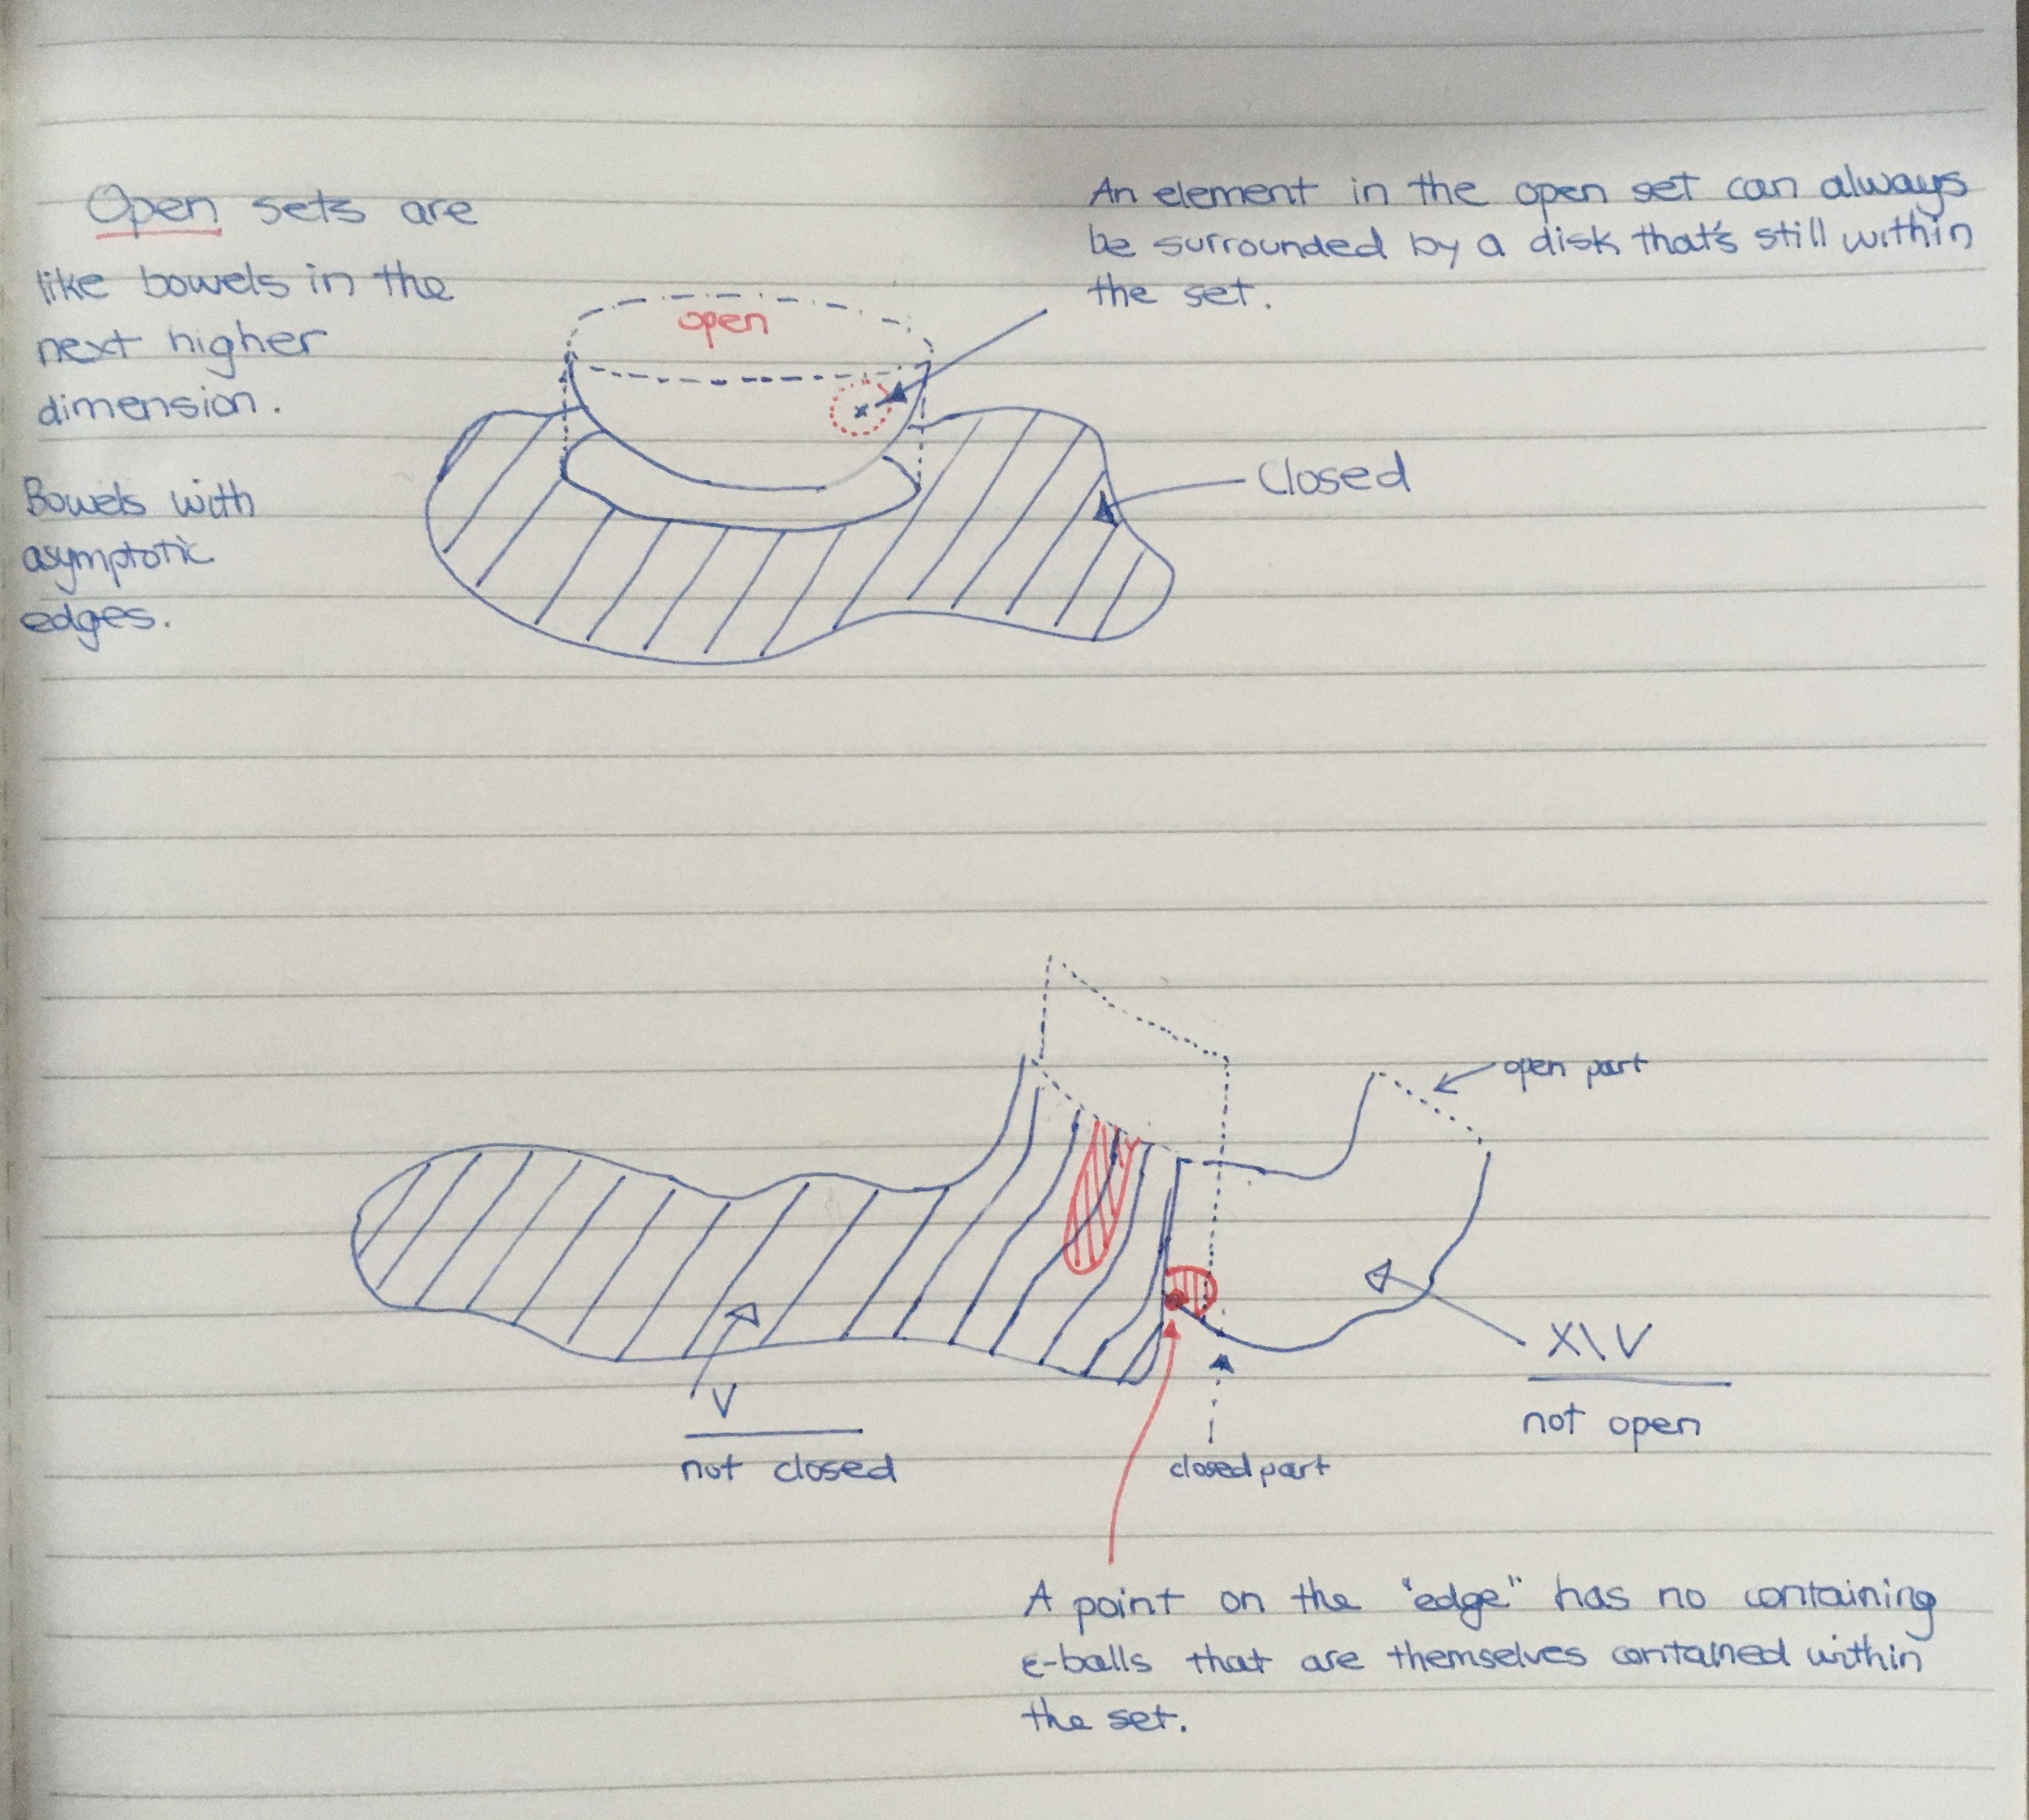 Open sets are
like bowels in the
next higher
dimension.
Bowels with
asymptotic
edges.
open
An element in the open set can always
be surrounded by a disk that's still within
the set.
Closed
open part
X\V
not open
V
not closed
closed part
A point on the "edge" has no containing
ε-balls that are themselves contained within
the set.